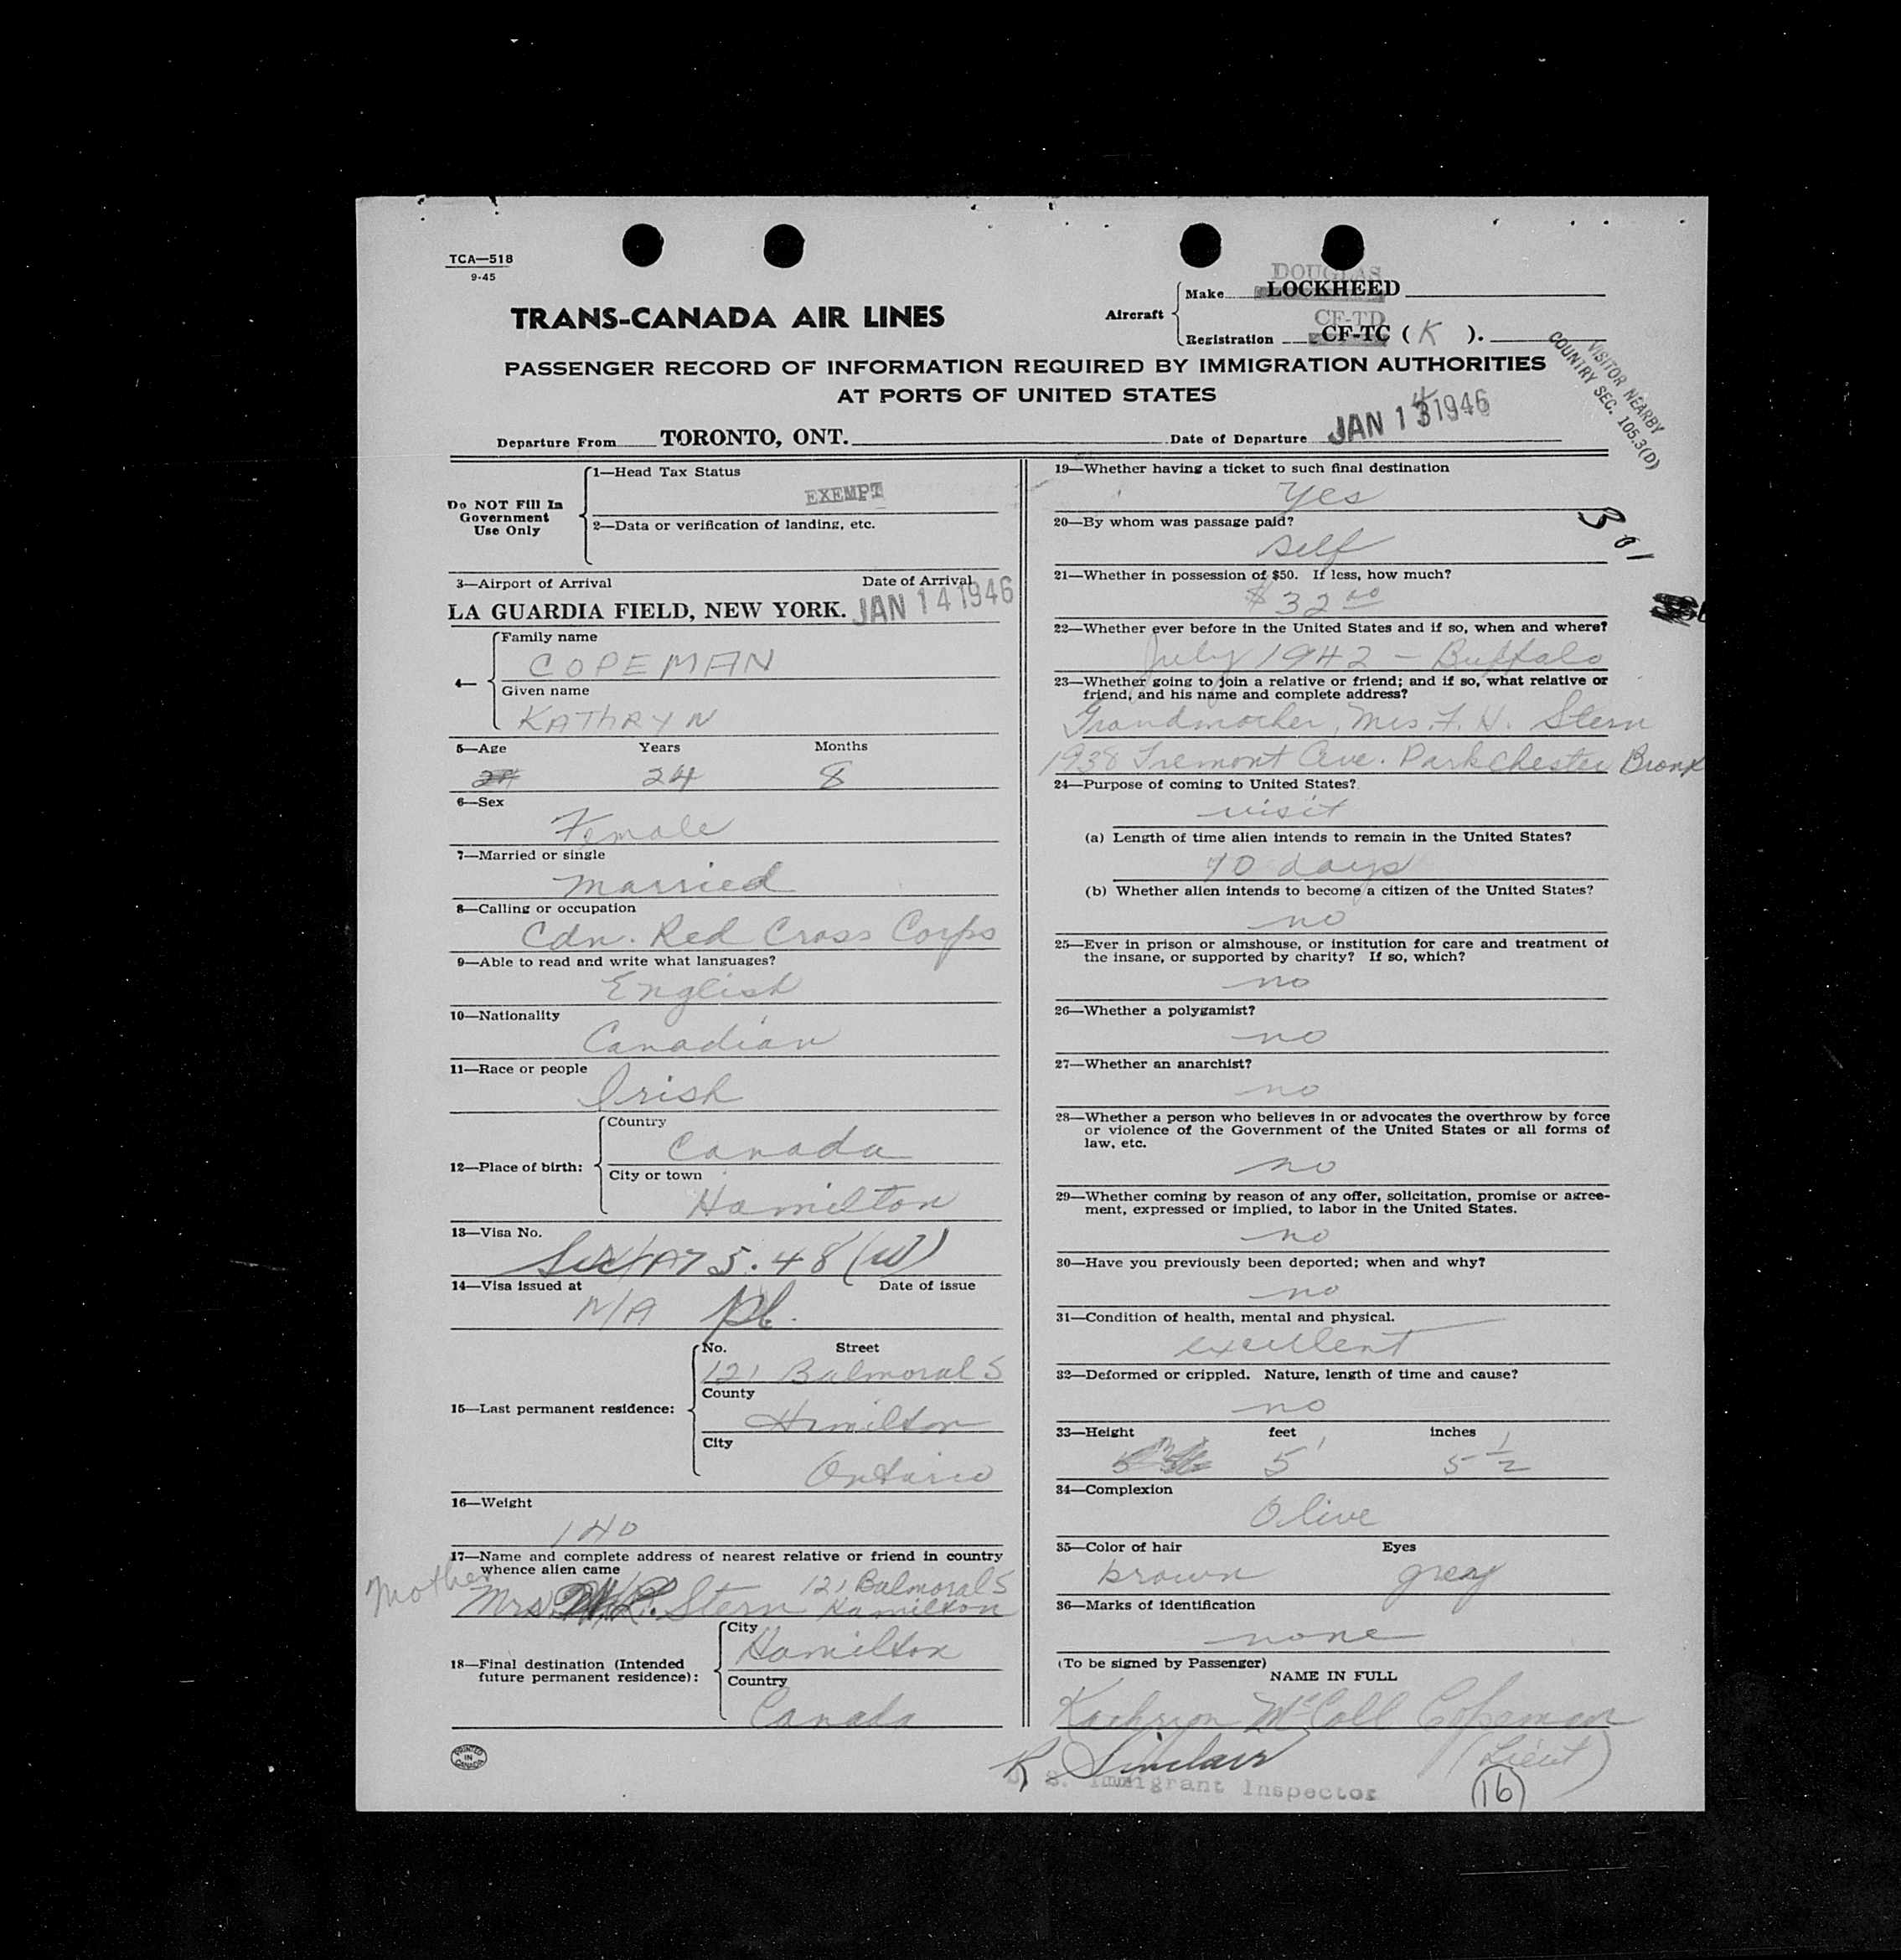 TCA—518
9-45
DOUGLAS
Aircraft
Make LOCKHEED
CF-TD
Registration CF-TC ( K ).
TRANS-CANADA AIR LINES
PASSENGER RECORD OF INFORMATION REQUIRED BY IMMIGRATION AUTHORITIES
AT PORTS OF UNITED STATES
VISITOR NEARBY
COUNTRY SEC. 105.3(D)
Departure From TORONTO, ONT. Date of Departure JAN 14 1946
Do NOT Fill In
Government
Use Only
1—Head Tax Status
EXEMPT
2—Data or verification of landing, etc.
3—Airport of Arrival Date of Arrival
LA GUARDIA FIELD, NEW YORK. JAN 14 1946
4—
Family name
COPEMAN
Given name
KATHRYN
5—Age Years Months
24 8
6—Sex
Female
7—Married or single
married
8—Calling or occupation
Cdn. Red Cross Corps
9—Able to read and write what languages?
English
10—Nationality
Canadian
11—Race or people
Irish
12—Place of birth:
Country
Canada
City or town
Hamilton
13—Visa No.
5.48 (W)
14—Visa issued at Date of issue
N/A
15—Last permanent residence:
No. Street
121 Balmoral S
County
Hamilton
City
Ontario
16—Weight
140
17—Name and complete address of nearest relative or friend in country
whence alien came
Mother
Mrs. Stern 121 Balmoral S
Hamilton
18—Final destination (Intended
future permanent residence):
City
Hamilton
Country
Canada
PRINTED
IN
CANADA
19—Whether having a ticket to such final destination
Yes
20—By whom was passage paid?
self
301
21—Whether in possession of $50. If less, how much?
$32.00
22—Whether ever before in the United States and if so, when and where?
July 1942 — Buffalo
23—Whether going to join a relative or friend; and if so, what relative or
friend, and his name and complete address?
Grandmother, Mrs. F. H. Stern
1938 Tremont Ave. Parkchester Bronx
24—Purpose of coming to United States?
visit
(a) Length of time alien intends to remain in the United States?
10 days
(b) Whether alien intends to become a citizen of the United States?
no
25—Ever in prison or almshouse, or institution for care and treatment of
the insane, or supported by charity? If so, which?
no
26—Whether a polygamist?
no
27—Whether an anarchist?
no
28—Whether a person who believes in or advocates the overthrow by force
or violence of the Government of the United States or all forms of
law, etc.
no
29—Whether coming by reason of any offer, solicitation, promise or agree-
ment, expressed or implied, to labor in the United States.
no
30—Have you previously been deported; when and why?
no
31—Condition of health, mental and physical.
excellent
32—Deformed or crippled. Nature, length of time and cause?
no
33—Height feet inches
5' 5 1/2
34—Complexion
Olive
35—Color of hair Eyes
brown grey
36—Marks of identification
none
(To be signed by Passenger)
NAME IN FULL
Kathryn McColl Copeman
(Lieut)
R Sinclair
U. S. Immigrant Inspector
16